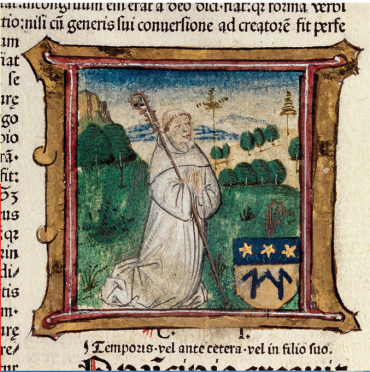 tat: incongruum em̄ erat a deo dici fiat: q̨ꝛ forma verbi
tio: nisi cū generis sui conuersione ad creatorē fit perfe
um
iat
se
ure
go
pio
rā.
fit:
us
q̨ꝛ
rin
di/
tis
m.
urę
re/
C. I.
¶ Temporis. vel ante cetera. vel in filio suo.